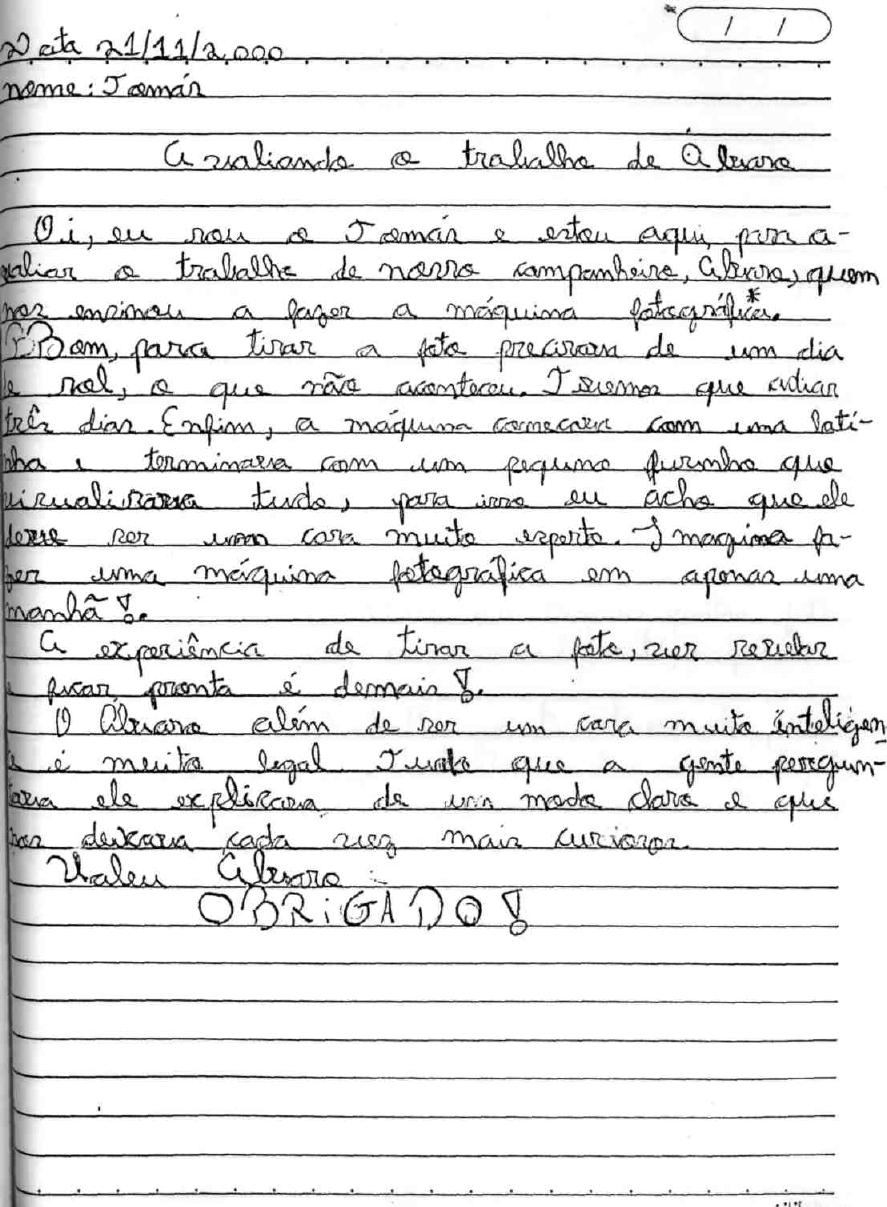 / /
Data 21/11/2.000
nome: Tomás
Avaliando o trabalho de Álvaro
Oi, eu sou o Tomás e estou aqui, para a-
valiar o trabalho de nosso companheiro, Álvaro, quem
nos ensinou a fazer a máquina fotográfica.*
Bom, para tirar a foto precisava de um dia
de sol, o que não aconteceu. Tivemos que adiar
três dias. Enfim, a máquina começava com uma lati-
nha e terminava com um pequeno furinho que
visualizava tudo, para isso eu acho que ele
deve ser um cara muito esperto. Imagina fa-
zer uma máquina fotográfica em apenas uma
manhã!.
A experiência de tirar a foto, ver revelar
e ficar pronta é demais!.
O Álvaro além de ser um cara muito inteligen
te é muito legal Tudo que a gente peregun-
tava ele explicava de um modo claro e que
nos deixava cada vez mais curiosos.
Valeu Álvaro
OBRiGADO!